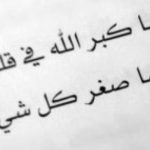 ا كبر الله في قل
ا صغر كل شي